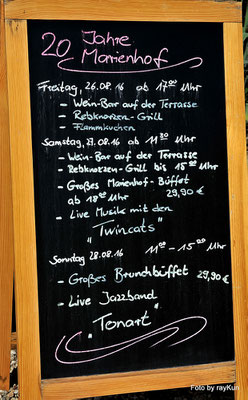 20 Jahre
Marienhof
Freitag, 26.08.16 ab 17⁰⁰ Uhr
- Wein-Bar auf der Terrasse
- Rebknorzen-Grill
- Flammkuchen
Samstag, 27.08.16 ab 11³⁰ Uhr
- Wein-Bar auf der Terrasse
- Rebknorzen-Grill bis 15⁰⁰ Uhr
- Großes Marienhof-Büffet
ab 18⁰⁰ Uhr 29,90 €
- Live Musik mit den
"Twincats"
Sonntag 28.08.16 11⁰⁰ - 15⁰⁰ Uhr
- Großes Brunchbüffet 29,90 €
- Live Jazzband
"Tonart"
Foto by rayKun